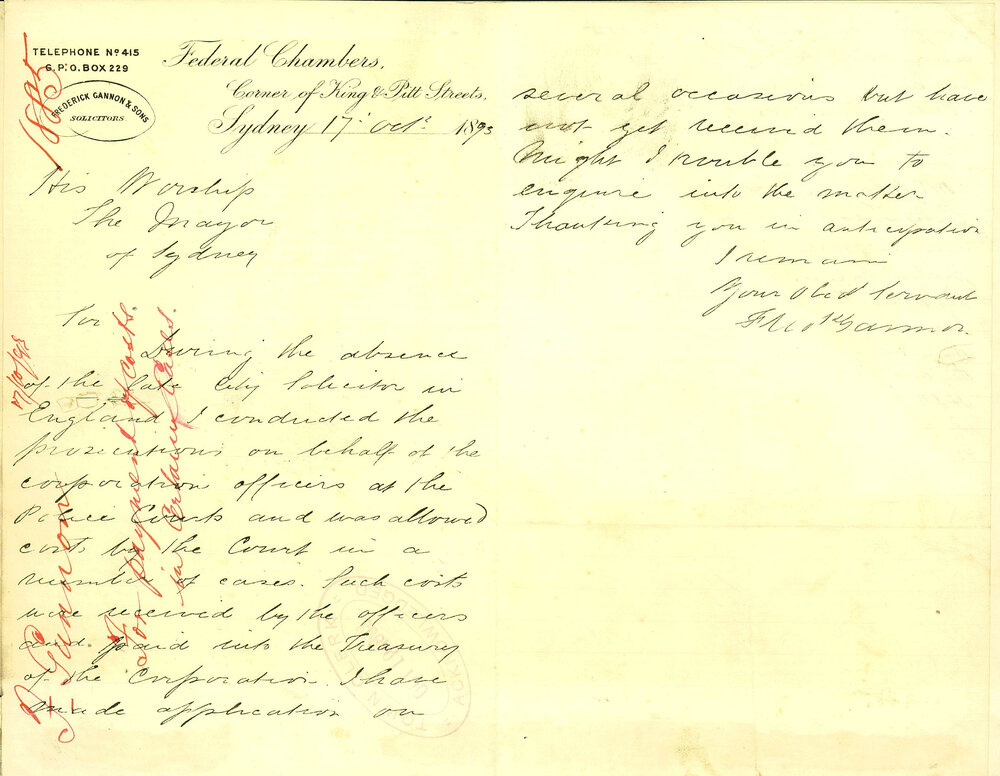 TELEPHONE Nº 415
G.P.O. BOX 229
FREDERICK GANNON & SONS
SOLICITORS
Federal Chambers,
Corner of King & Pitt Streets,
Sydney 17 Octr 1893
His Worship
The Mayor
of Sydney
Sir
During the absence
of the late City Solicitor in
England I conducted the
prosecutions on behalf of the
corporation officers at the
Police Courts and was allowed
costs by the Court in a
number of cases. Such costs
were received by the officers
and paid into the Treasury
of the Corporation. I have
made application on
several occasions but have
not yet received them.
Might I trouble you to
enquire into the matter
Thanking you in anticipation
I remain
Your Obed Servant
Fredk Gannon
17/10/93
F Gannon
For payment of costs
in certain cases.